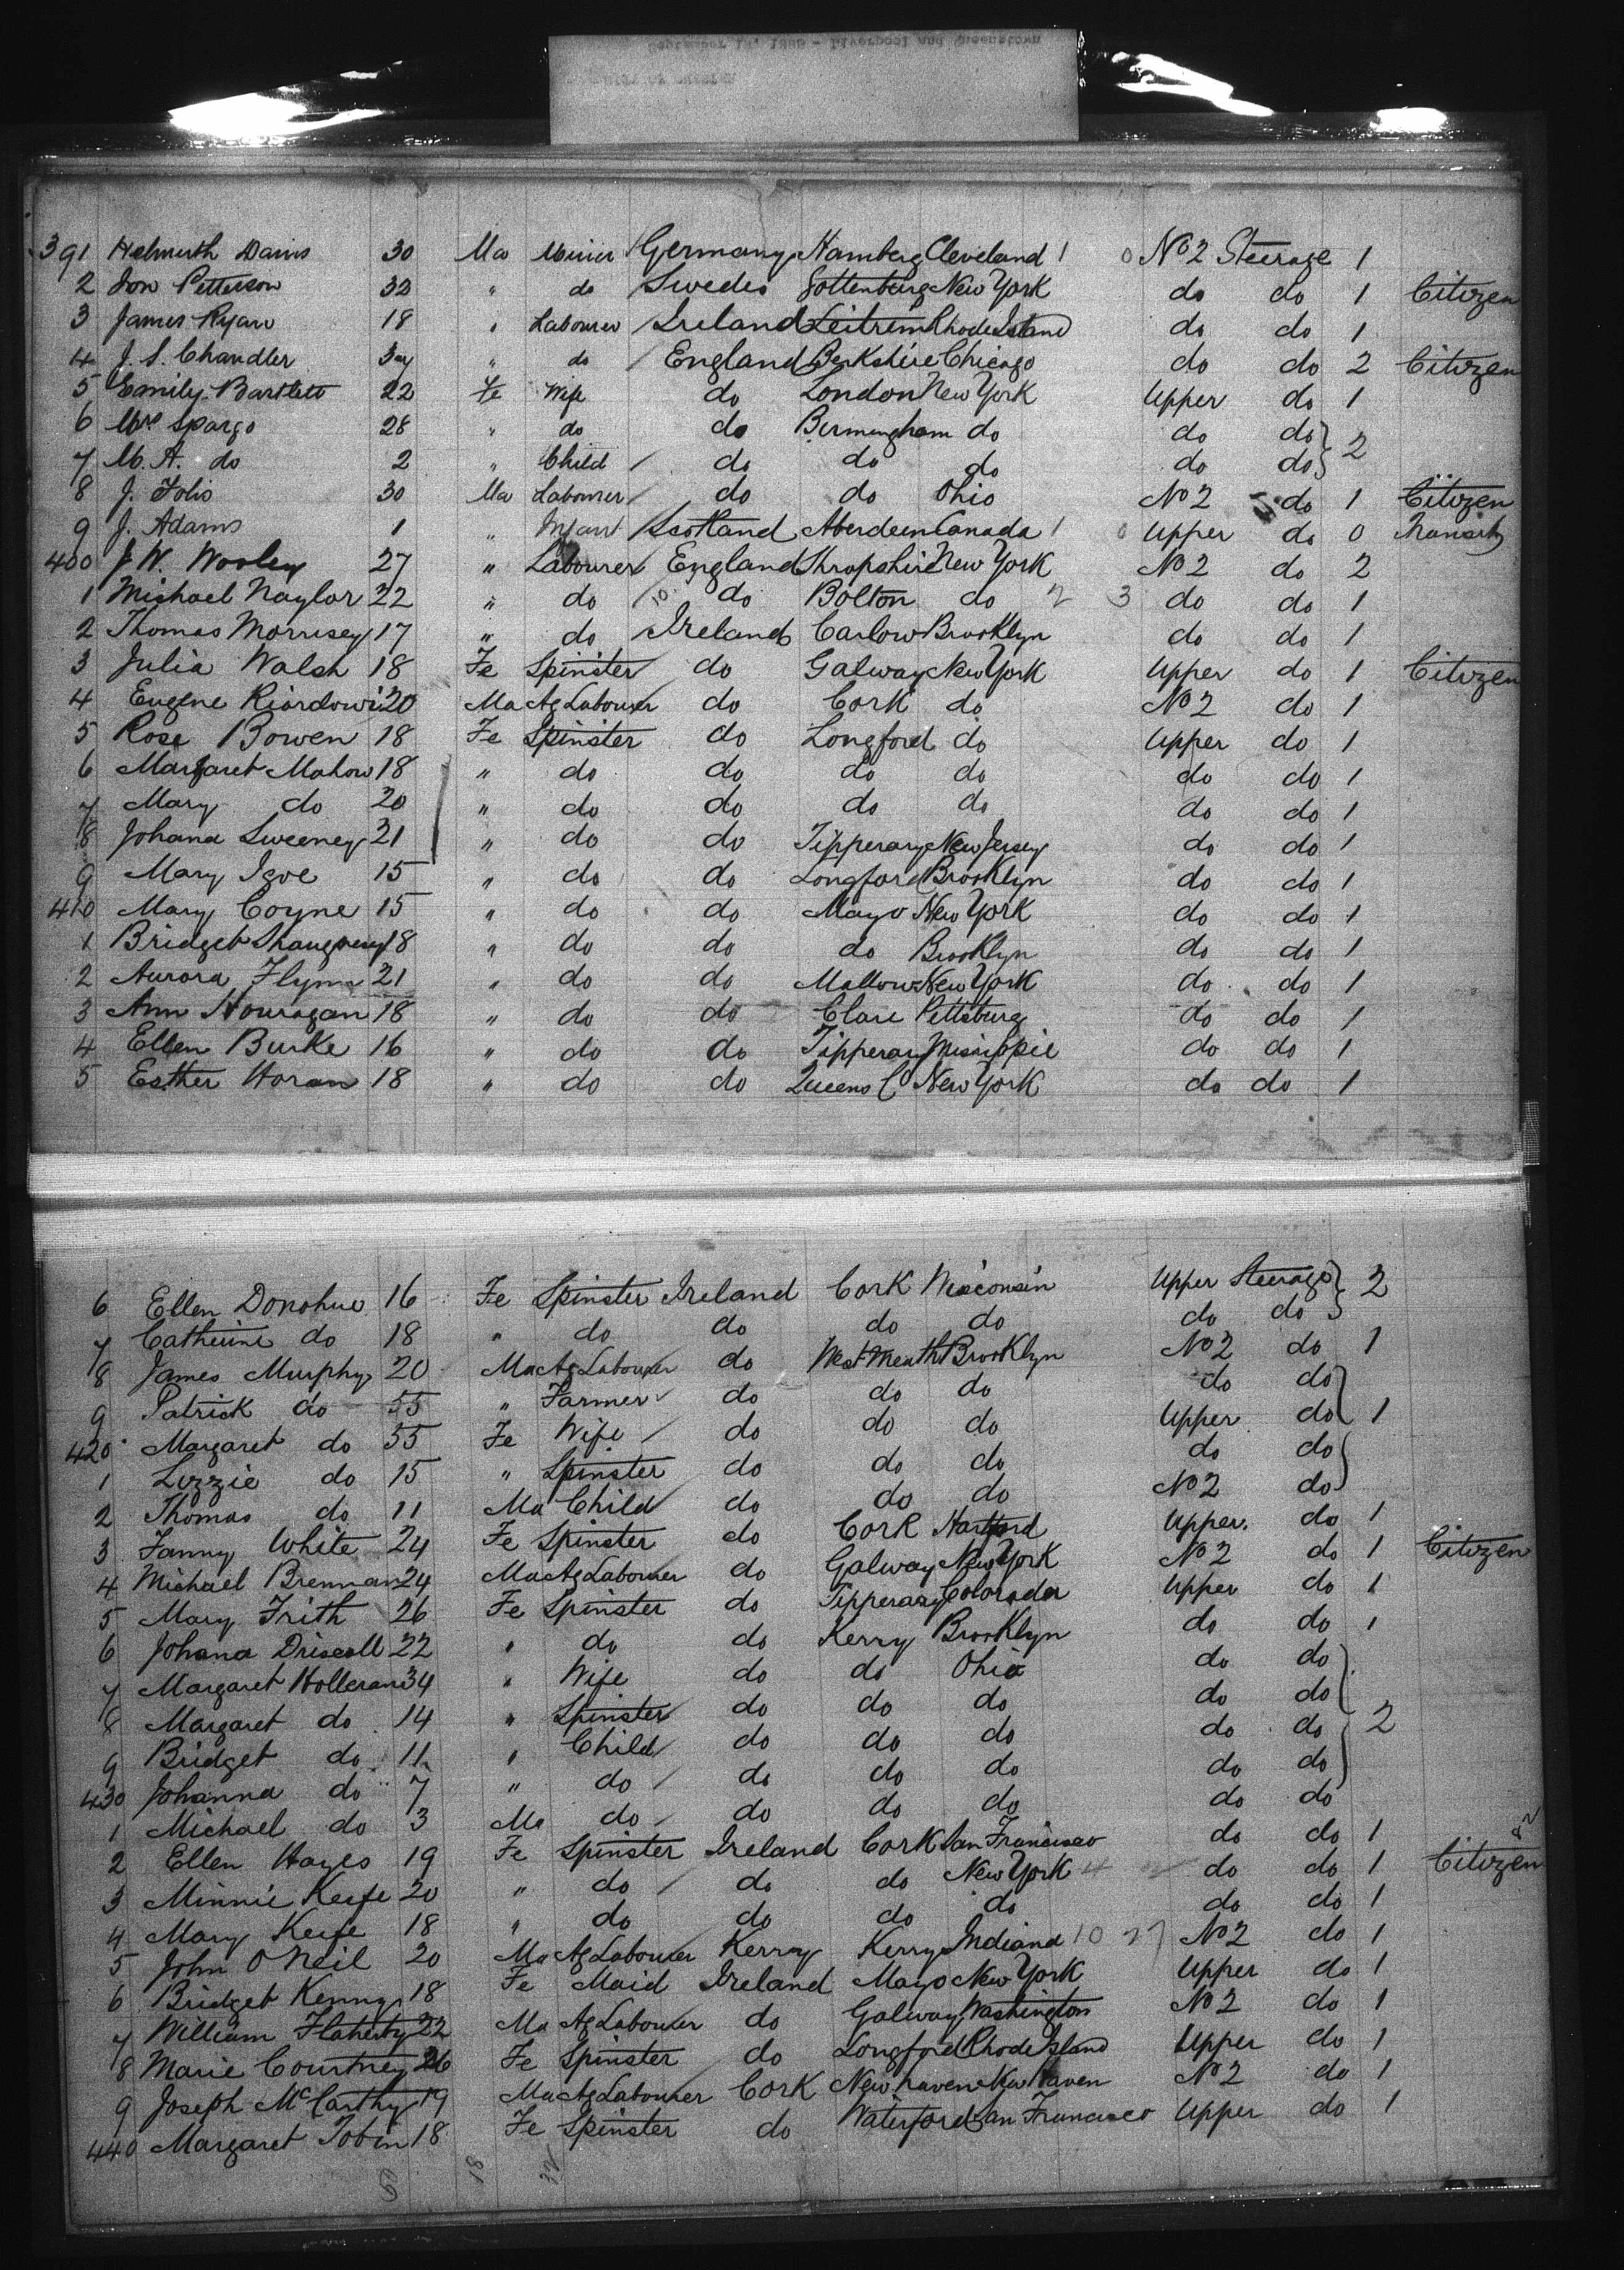 391 Helmuth Dains 30 Ma Miner Germany Hamberg Cleveland 1 0 No 2 Steerage 1
2 Jon Petterson 32 " do Swedes Gottenburg New York do do 1 Citizen
3 James Ryan 18 " Labourer Ireland Leitrim Rhode Island do do 1
4 J. S. Chandler " do England Berkshire Chicago do do 2 Citizen
5 Emily Bartlett 22 Fe Wife do London New York Upper do 1
6 Mrs Spargo 28 " do do Birmingham do do do 2
7 M. A. do 2 " Child do do do do do
8 J. Folis 30 Ma Labourer do do Ohio No 2 do 1 Citizen
9 J. Adams 1 " Infant Scotland Aberdeen Canada 1 0 Upper do 0 Transit
400 J. W. Wooley 27 " Labourer England Shropshire New York No 2 do 2
1 Michael Naylor 22 " do 10 do Bolton do 2 3 do do 1
2 Thomas Morrisey 17 " do Ireland Carlow Brooklyn do do 1
3 Julia Walsh 18 Fe Spinster do Galway New York Upper do 1 Citizen
4 Eugene 20 Ma Ag Labourer do Cork do No 2 do 1
5 Rose Bowen 18 Fe Spinster do Longford do Upper do 1
6 Margaret Mahow 18 " do do do do do do 1
7 Mary do 20 " do do do do do do 1
8 Johana Sweeney 21 " do do Tipperary New Jersey do do 1
9 Mary Igoe 15 " do do Longford Brooklyn do do 1
410 Mary Coyne 15 " do do Mayo New York do do 1
1 Bridget 18 " do do do Brooklyn do do 1
2 Aurora Flynn 21 " do do Mallow New York do do 1
3 Ann Houragan 18 " do do Clare Pettsburg do do 1
4 Ellen Burke 16 " do do Tipperary do do 1
5 Esther Horan 18 " do do Queens Co New York do do 1
6 Ellen Donohue 16 Fe Spinster Ireland Cork Wisconsin Upper Steerage 2
7 Catherine do 18 " do do do do do do
8 James Murphy 20 Ma Ag Labourer do West Meath Brooklyn No 2 do 1
9 Patrick do 55 " Farmer do do do do do
420 Margaret do 55 Fe Wife do do do Upper do 1
1 Lizzie do 15 " Spinster do do do do do
2 Thomas do 11 Ma Child do do do No 2 do
3 Fanny White 24 Fe Spinster do Cork Hartford Upper do 1
4 Michael Brennan 24 Ma Ag Labourer do Galway New York No 2 do 1 Citizen
5 Mary Frith 26 Fe Spinster do Tipperary Colorado Upper do 1
6 Johana Driscoll 22 " do do Kerry Brooklyn do do 1
7 Margaret Holleran 34 " Wife do do Ohio do do
8 Margaret do 14 " Spinster do do do do do
9 Bridget do 11 " Child do do do do do 2
430 Johanna do 7 " do do do do do do
1 Michael do 3 Ma do do do do do do
2 Ellen Hayes 19 Fe Spinster Ireland Cork San Francisco do do 1
3 Minnie Keefe 20 " do do do New York 4 do do 1 Citizen
4 Mary Keefe 18 " do do do do do do 1
5 John O Neil 20 Ma Ag Labourer Kerry Kerry Indiana 10 27 No 2 do 1
6 Bridget Kenny 18 Fe Maid Ireland Mayo New York Upper do 1
7 William Flaherty 22 Ma Ag Labourer do Galway Washington No 2 do 1
8 Marie Courtney 26 Fe Spinster do Longford Rhode Island Upper do 1
9 Joseph McCarthy 19 Ma Ag Labourer Cork Newhaven New Haven No 2 do 1
440 Margaret Tobin 18 Fe Spinster do Waterford San Francisco Upper do 1
18